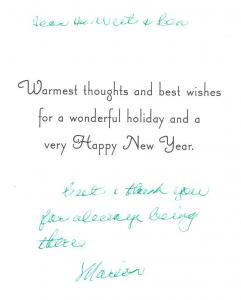 Dear
Warmest thoughts and best wishes
for a wonderful holiday and a
very Happy New Year.
thank you
for always being
there
Marion